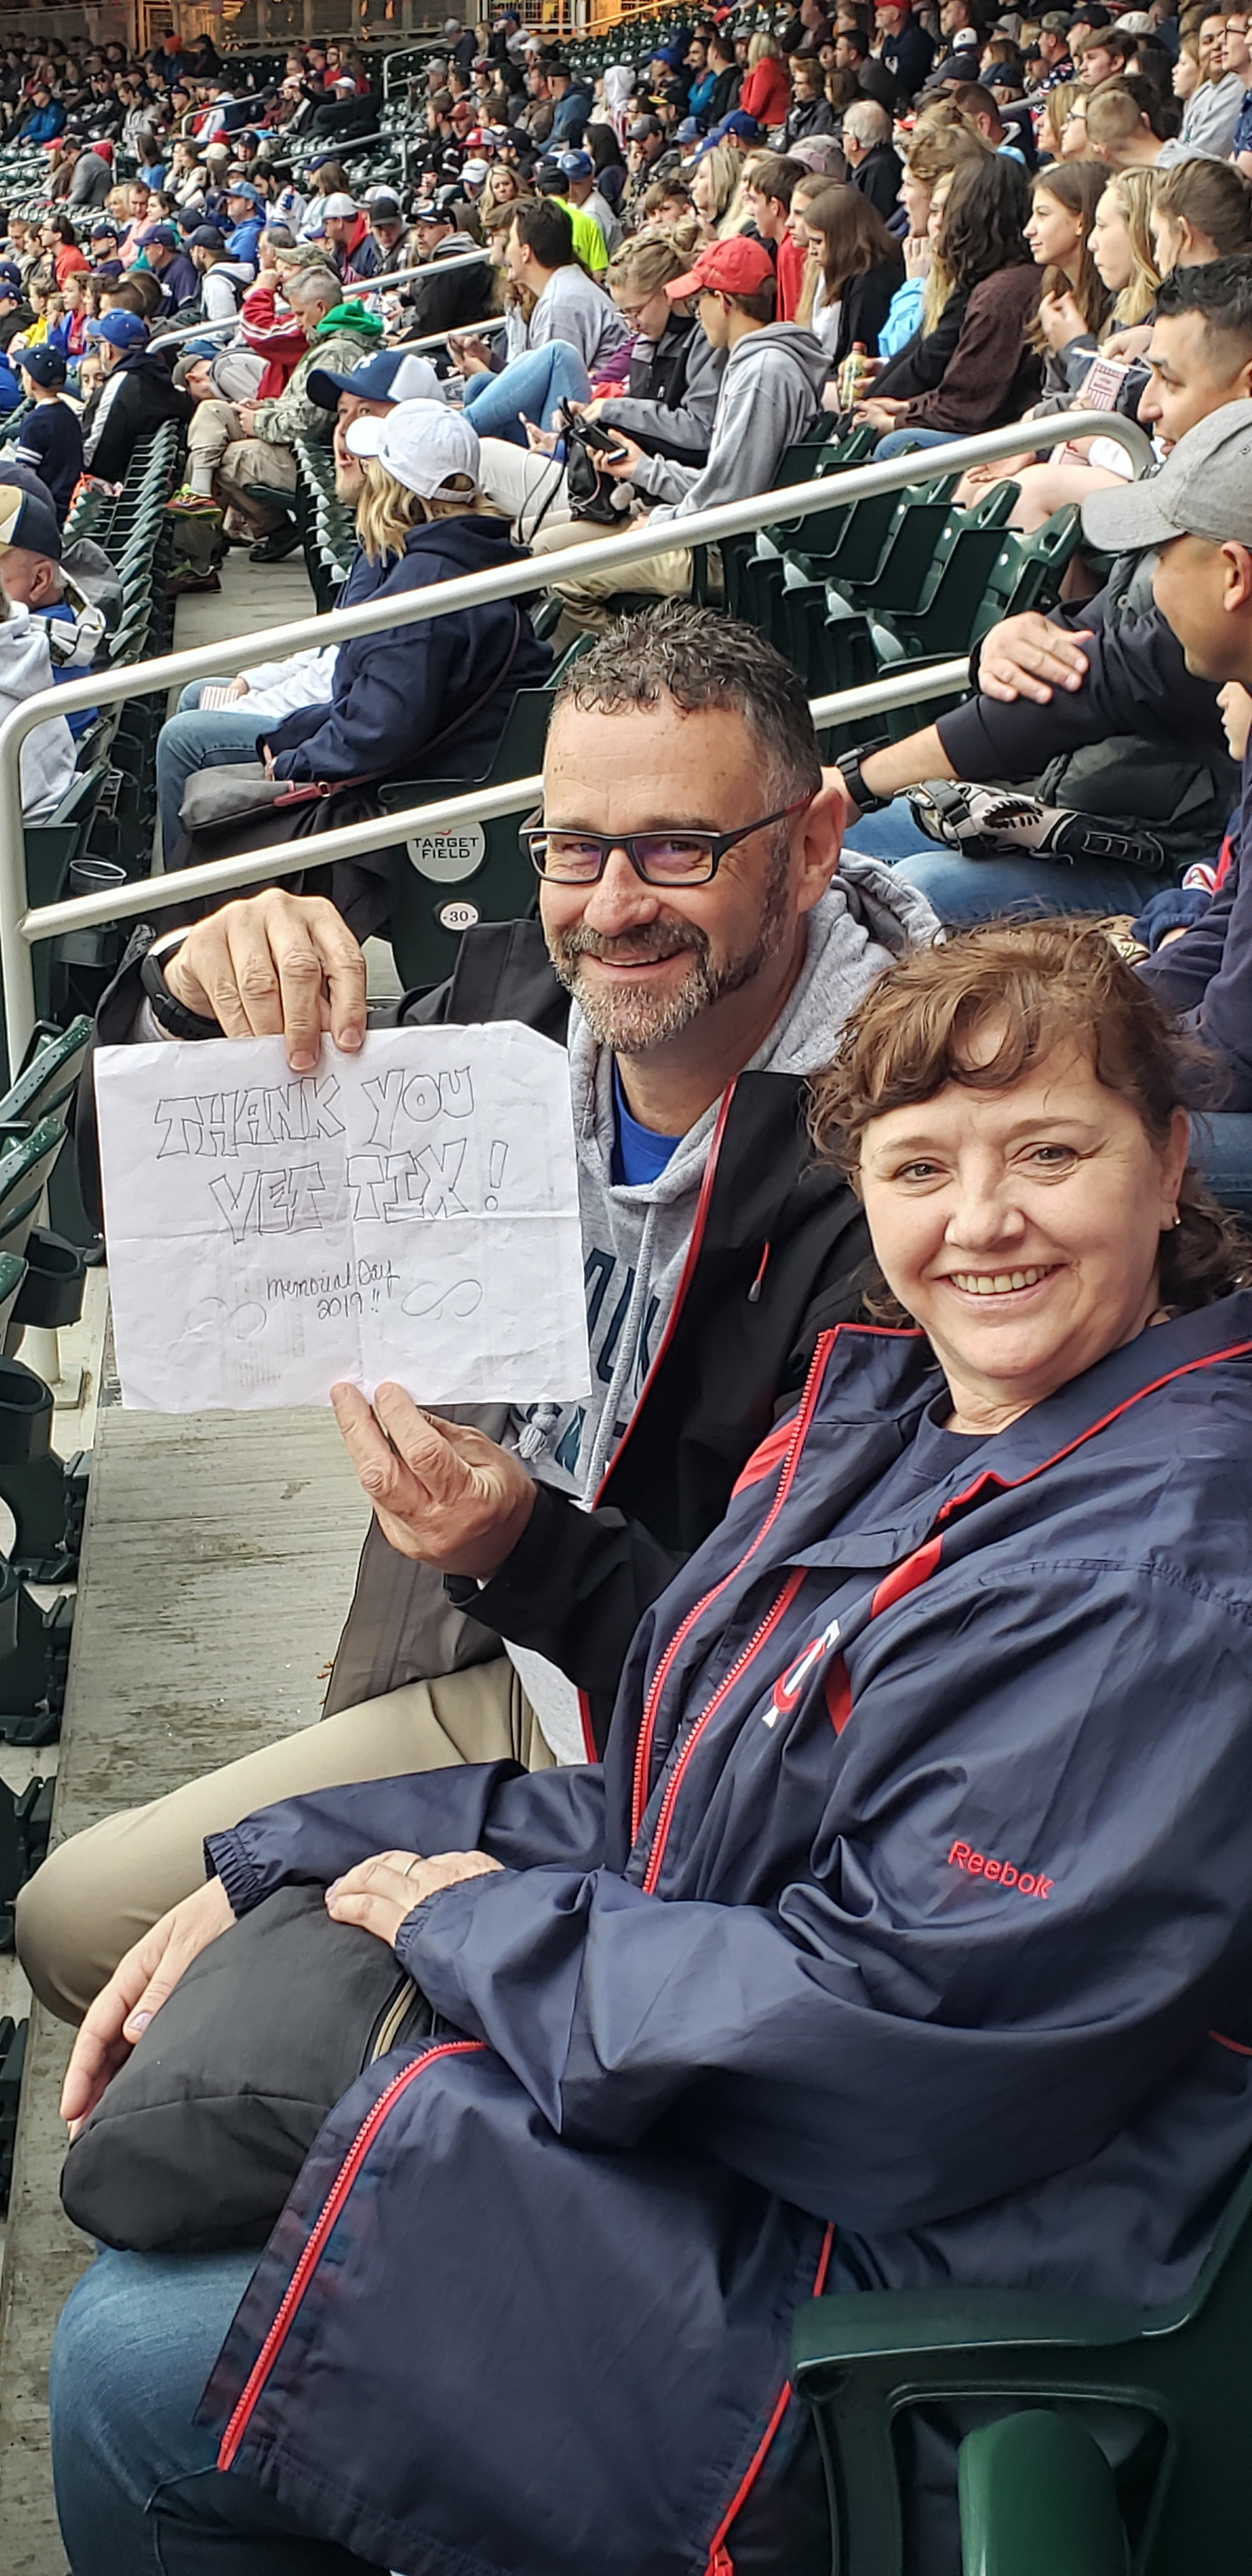 TARGET
FIELD
30
THANK YOU
VET TIX!
Memorial Day
2019!!
TC
Reebok